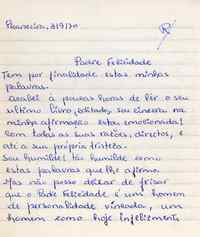 Pavareira, 3/9/70
Padre Felicidade
Tem por finalidade estas minhas
palavras.
Acabei à poucas horas de ler o seu
ultimo livro, editado, sou sincera na
minha afirmação estou emocionada!
com todas as suas razões, directas, e
até a sua própria tristeza.
Sou humilde! tão humilde como
estas palavras que lhe afirmo.
Mas não posso deixar de frisar
que o Padre Felicidade é um homem
de personalidade vincada, um
homem como hoje infelizmente